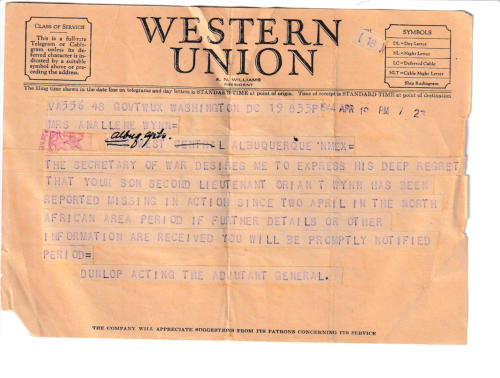 CLASS OF SERVICE
This is a full-rate
Telegram or Cable-
gram unless its de-
ferred character is in-
dicated by a suitable
symbol above or pre-
ceding the address.
WESTERN
UNION
A. N. WILLIAMS
PRESIDENT
SYMBOLS
DL=Day Letter
NL=Night Letter
LC=Deferred Cable
NLT=Cable Night Letter
Ship Radiogram
The filing time shown in the date line on telegrams and day letters is STANDARD TIME at point of origin. Time of receipt is STANDARD TIME at point of destination
VA556 48 GOVT WUX WASHINGTON DC 19 833P
1944 APR 19 PM 7 2
MRS ANALLENE WYNN=
ST CENTRAL ALBUQUERQUE NMEX=
THE SECRETARY OF WAR DESIRES ME TO EXPRESS HIS DEEP REGRET
THAT YOUR SON SECOND LIEUTENANT ORIAN T WYNN HAS BEEN
REPORTED MISSING IN ACTION SINCE TWO APRIL IN THE NORTH
AFRICAN AREA PERIOD IF FURTHER DETAILS OR OTHER
INFORMATION ARE RECEIVED YOU WILL BE PROMPTLY NOTIFIED
PERIOD=
DUNLOP ACTING THE ADJUTANT GENERAL.
THE COMPANY WILL APPRECIATE SUGGESTIONS FROM ITS PATRONS CONCERNING ITS SERVICE